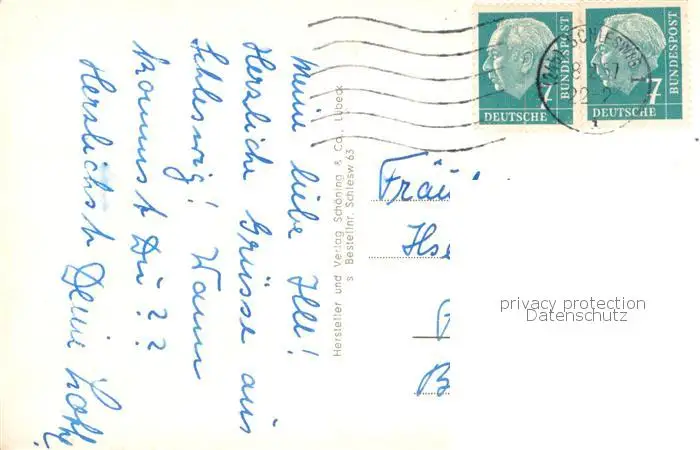 Meine liebe Ille!
Herzliche Grüsse aus
Schleswig! Wann
kommst Du??
Herzlichst Deine Lotte
Hersteller und Verlag Schöning & Co., Lübeck
s Bestellnr. Schlesw 63
DEUTSCHE BUNDESPOST 7
DEUTSCHE BUNDESPOST 7
SCHLESWIG 1
Fräu
Ilse
B
privacy protection
Datenschutz